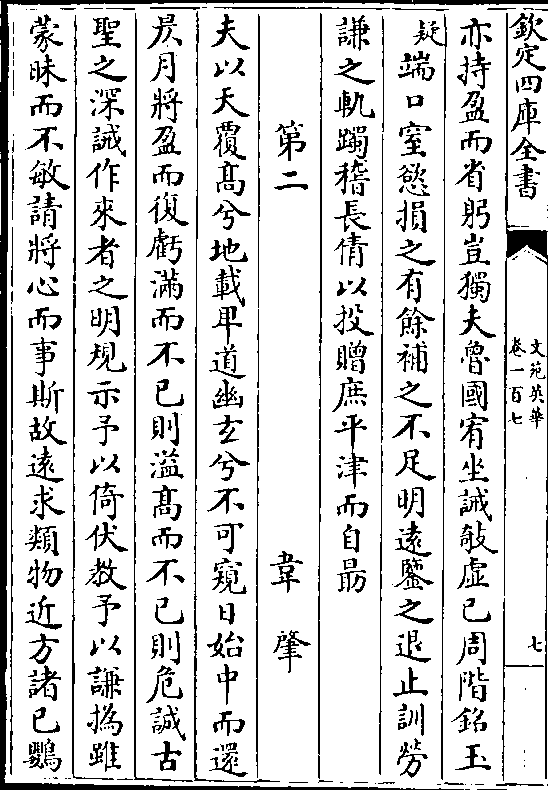 欽定四庫全書
文苑英華
卷一百七
七
亦持盈而省躬豈獨夫魯國宥坐誡欹虛已周階銘玉
疑端口窒慾損之有餘補之不足明遠鑒之退止訓勞
謙之軌躅稽長倩以投贈庶平津而自勗
第二 韋肇
夫以天覆髙兮地載卑道幽玄兮不可窺日始中而還
昃月將盈而復虧滿而不已則溢髙而不已則危誠古
聖之深誡作來者之明規示予以倚伏教予以謙撝雖
蒙昧而不敏請將心而事斯故遠求類物近方諸已鸚